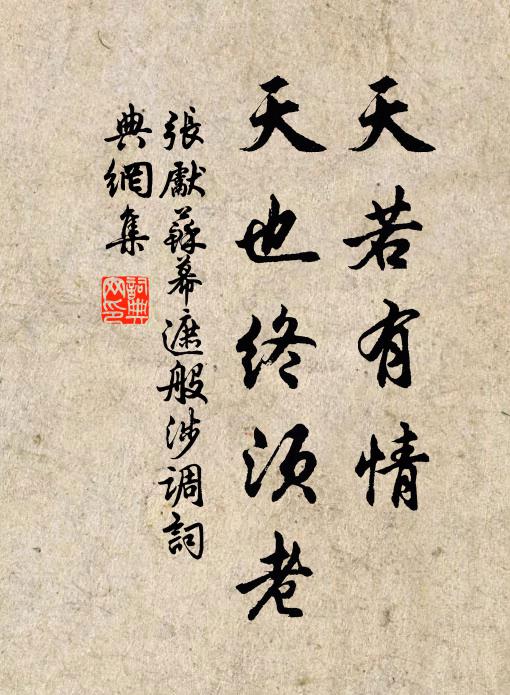 天若有情
天也終須老
張獻蘇幕遮般涉調詞
典網集
詞典网印